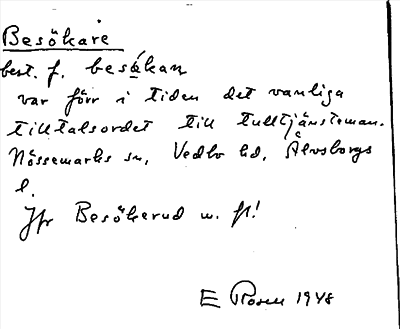 Besökare
best. f. besökan
var förr i tiden det vanliga
tilltalsordet till tulltjänsteman.
Nössemarks sn, Vedbo hd, Älvsborgs
l.
Jfr Besökerud u. fl!
E Rosen 1948